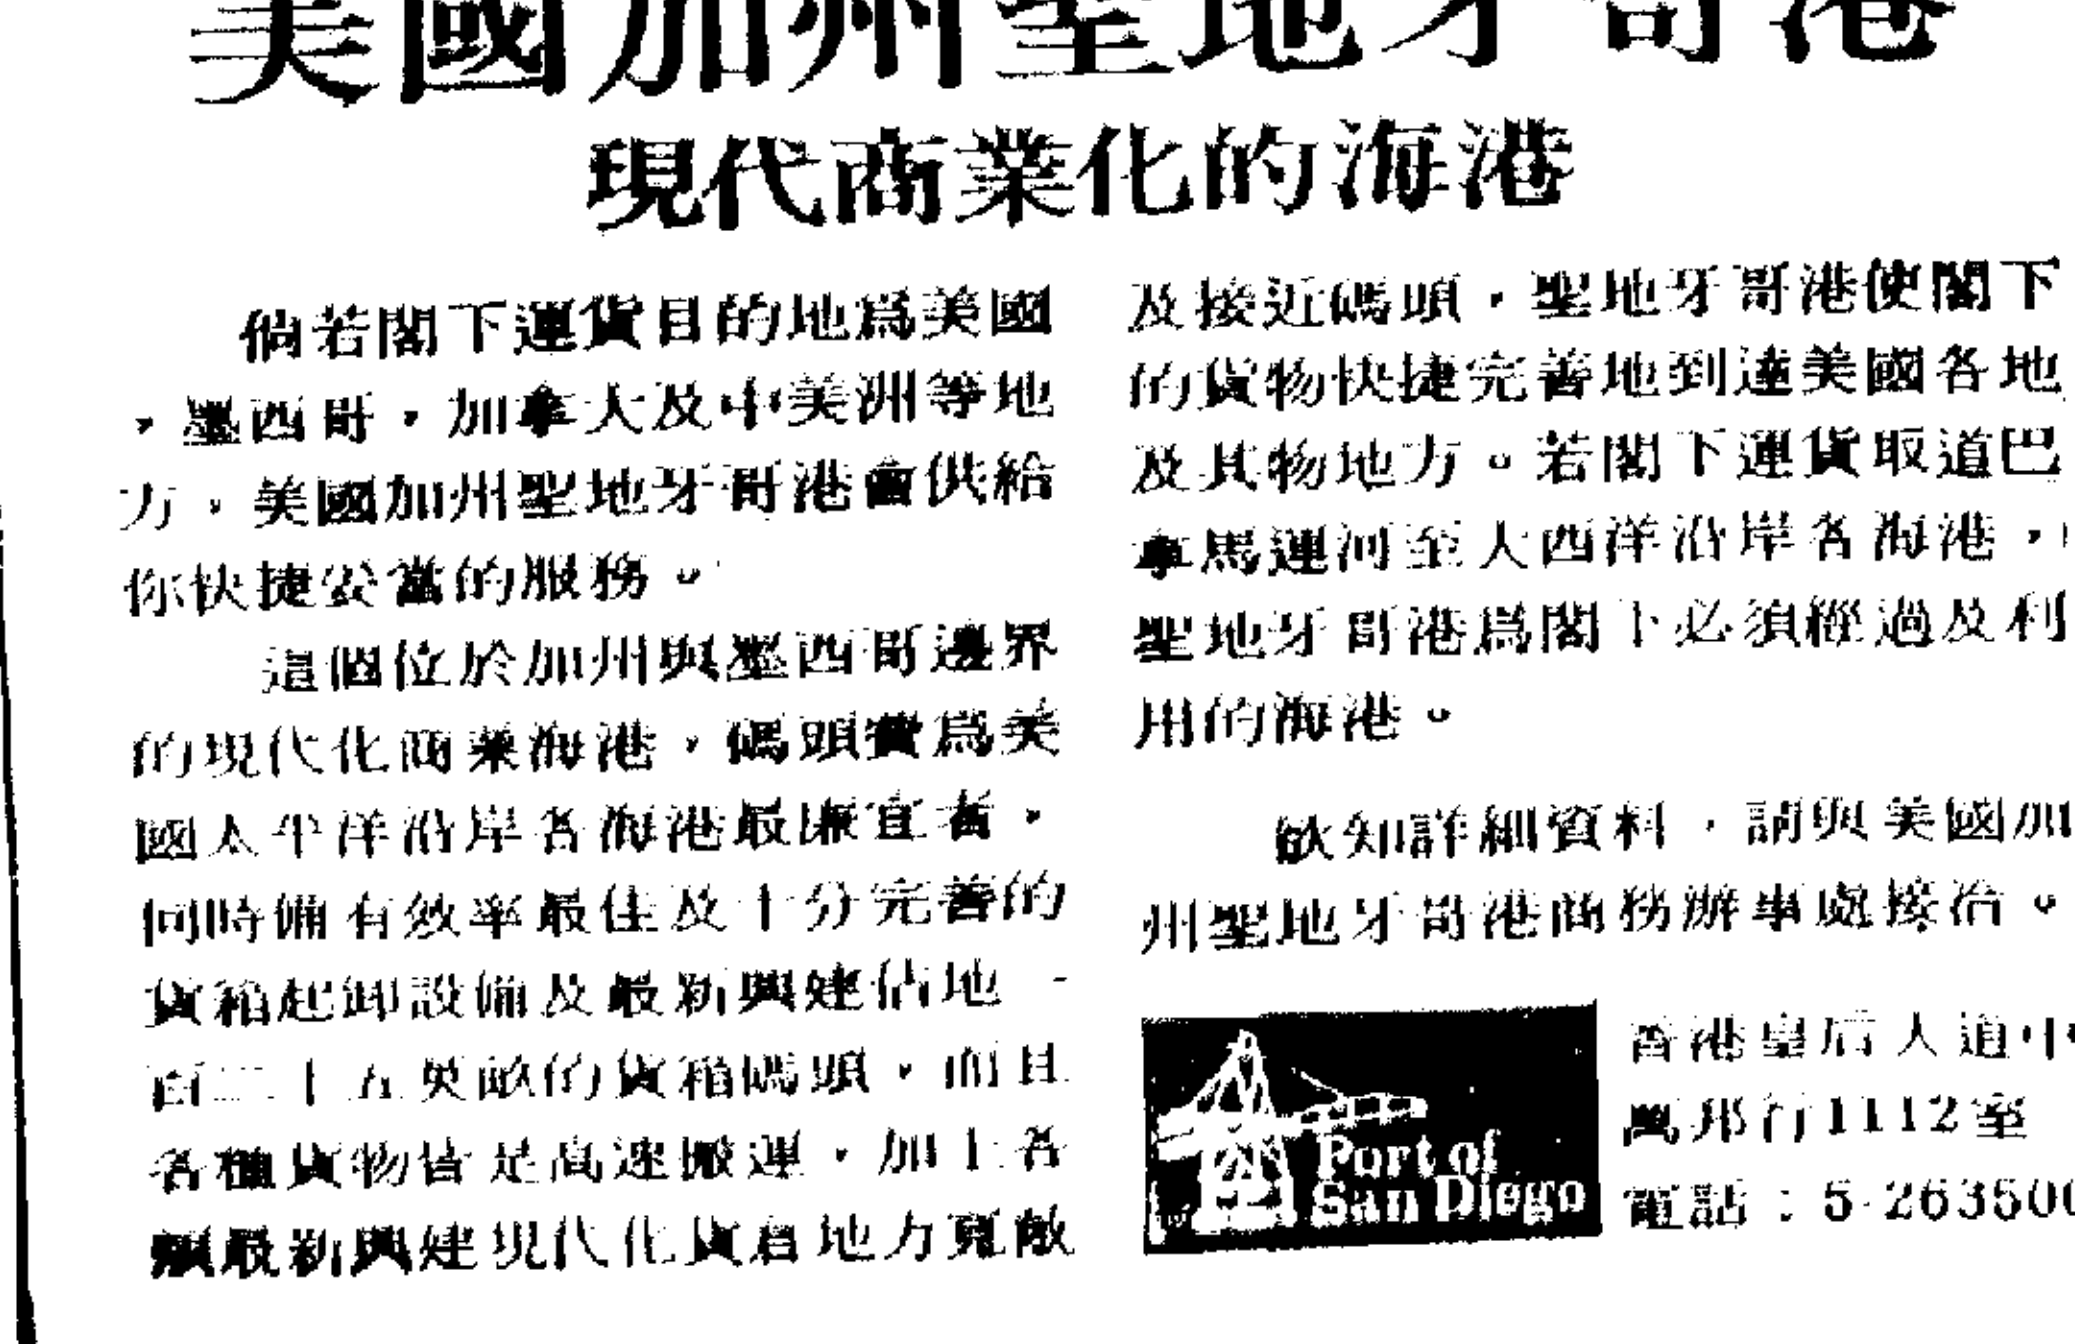 美國加州聖地牙哥港
現代商業化的海港
倘若閣下運貨目的地爲美國
，墨西哥，加拿大及中美洲等地
方，美國加州聖地牙哥港會供給
你快捷妥當的服務。
這個位於加州與墨西哥邊界
的現代化商業海港，碼頭費爲美
國太平洋沿岸各海港最廉宜者，
同時備有效率最佳及十分完善的
貨箱起卸設備及最新興建佔地一
百二十五英畝的貨箱碼頭，而且
各種貨物皆是高速搬運，加上各
類最新興建現代化貨倉地方寬敞
及接近碼頭，聖地牙哥港使閣下
的貨物快捷完善地到達美國各地
及其物地方。若閣下運貨取道巴
拿馬運河至大西洋沿岸各海港，
聖地牙哥港爲閣下必須經過及利
用的海港。
欲知詳細資料，請與美國加
州聖地牙哥港商務辦事處接洽。
Port of
San Diego
香港皇后大道中
萬邦行1112室
電話：5-263500